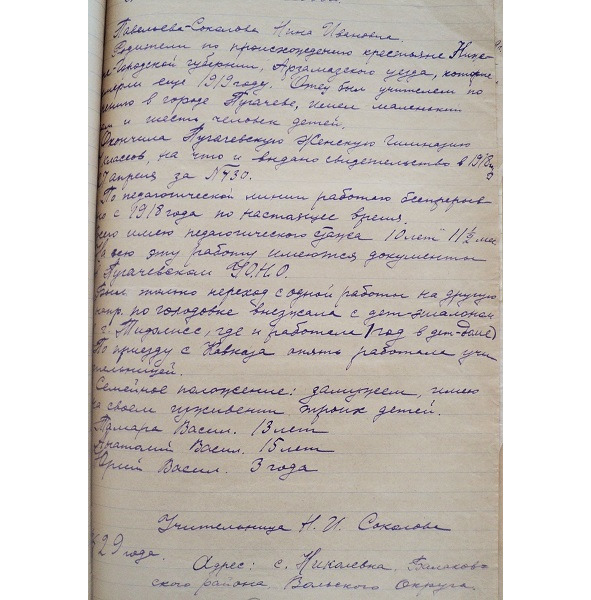 Павельева-Соколова Нина Ивановна.
Родители по происхождению крестьяне Ниже-
городской губернии, Арзамазского уезда, которые
умерли еще 1919 году. Отец был учителем по
в городе Пугачеве, имел маленький
и шесть человек детей.
Окончила Пугачевскую Женскую гимназию
классов, на что и выдано свидетельство в 1918 году
апреля за № 730.
По педагогической линии работаю беспрерыв
но с 1918 года по настоящее время.
Всего имею педагогического стажа 10 лет 11½ мес
За всю эту работу имеются документы
в Пугачевском У.О.Н.О.
Был только переход с одной работы на другую
напр. по голодовке выезжала с дет-эшалоном
г. Тифлисс, где и работала 1 год в дет-доме)
По приезду с Кавказа опять работала учи
тельницей.
Семейное положение: замужем, имею
на своем иждивении троих детей.
Тамара Васил. 13 лет
Анатолий Васил. 15 лет
Юрий Васил. 3 года
Учительница Н. И. Соколова
29 года.
Адрес: с. Николевка, Балаков-
ского района Вольского Округа.